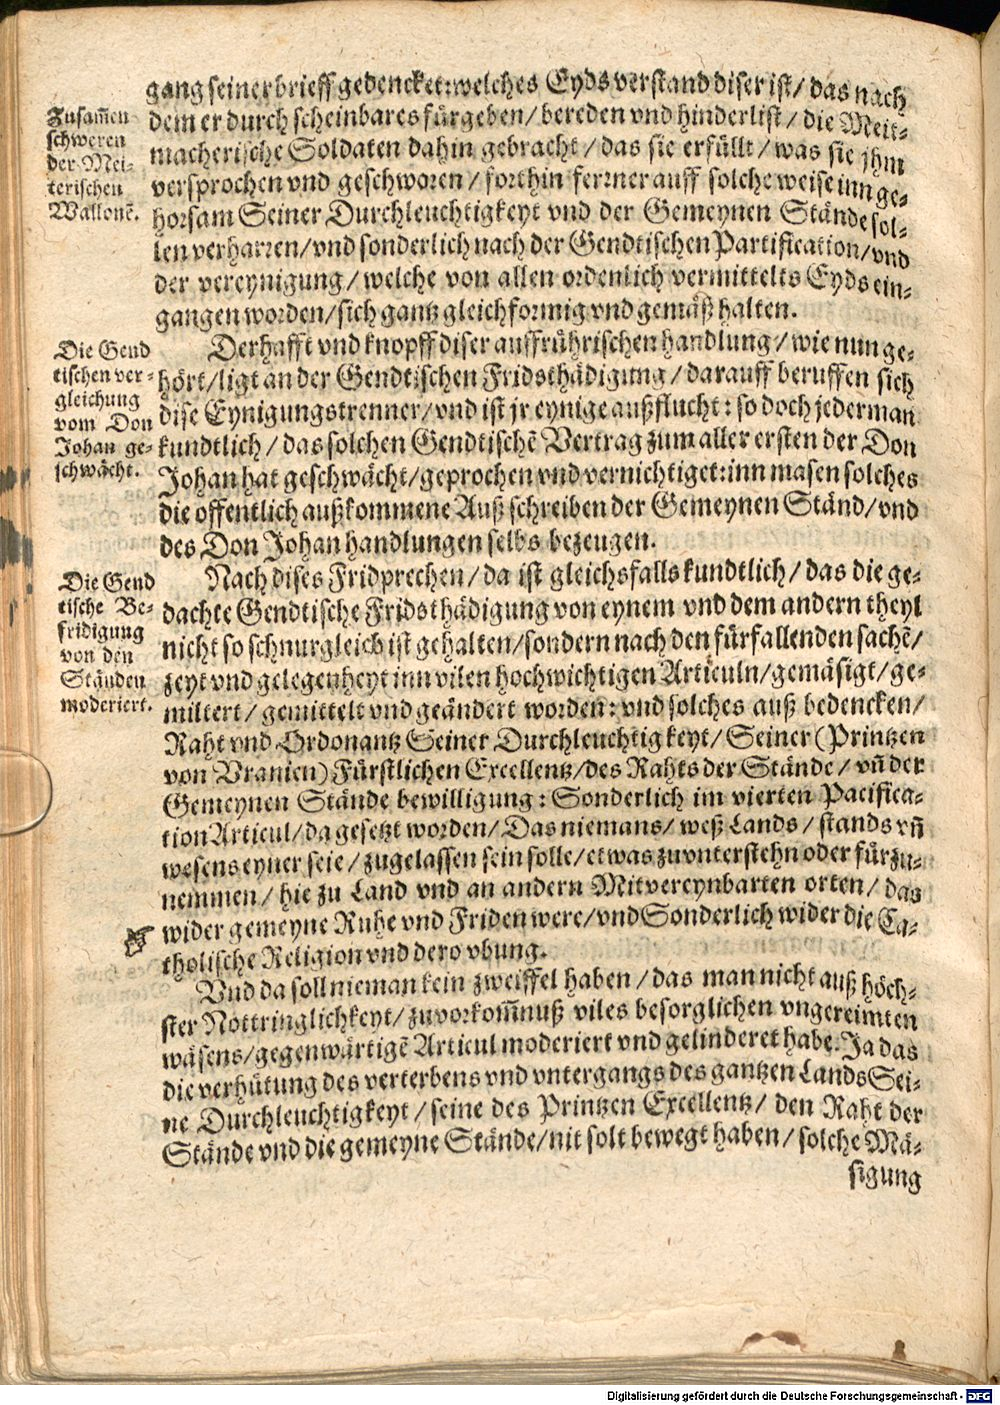 gang seiner brieff gedencket: welches Eyds verstand diser ist / das nach
dem er durch scheinbares fürgeben / bereden vnd hinderlist / die Meit-
macherische Soldaten dahin gebracht / das sie erfüllt / was sie jhm
versprochen vnd geschworen / forthin ferrner auff solche weise inn ge-
horsam Seiner Durchleuchtigkeyt vnd der Gemeynen Stände sol-
len verharren / vnd sonderlich nach der Gendtischen Partification / vnd
der vereynigung / welche von allen ordenlich vermittelts Eyds ein-
gangen worden / sich gantz gleichformig vnd gemäß halten.
Zusam̃en
schweren
der Mei-
terischen
Wallonẽ.
Der hafft vnd knopff diser auffrührischen handlung / wie nun ge-
hört / ligt an der Gendtischen Fridsthädigung / darauff beruffen sich
dise Eynigungstrenner / vnd ist jr eynige außflucht: so doch jederman
kundtlich / das solchen Gendtischẽ Vertrag zum aller ersten der Don
Johan hat geschwächt / geprochen vnd vernichtiget: inn masen solches
die offentlich außkommene Außschreiben der Gemeynen Ständ / vnd
des Don Johan handlungen selbs bezeugen.
Die Gend
tischen ver-
gleichung
vom Don
Johan ge-
schwächt.
Nach dises Fridprechen / da ist gleichsfalls kundtlich / das die ge-
dachte Gendtische Fridsthädigung von eynem vnd dem andern theyl
nicht so schnurgleich ist gehalten / sondern nach den fürfallenden sachẽ /
zeyt vnd gelegenheyt inn vilen hochwichtigen Articuln / gemäsigt / ge-
miltert / gemittelt vnd geändert worden: vnd solches auß bedencken /
Raht vnd Ordonantz Seiner Durchleuchtigkeyt / Seiner (Printzen
von Vranien) Fürstlichen Excellentz / des Rahts der Stände / vñ der
Gemeynen Stände bewilligung: Sonderlich im vierten Pacifica-
tion Articul / da gesetzt worden / Das niemans / weß Lands / stands vñ
wesens eyner seie / zugelassen sein solle / etwas zuvnterstehn oder fürzu-
nemmen / hie zu Land vnd an andern Mitvereynbarten orten / das
wider gemeyne Ruhe vnd Friden were / vnd Sonderlich wider die Ca-
tholische Religion vnd dero vbung.
Die Gend
tische Be-
fridigung
von den
Ständen
moderiert.
Vnd da soll nieman kein zweiffel haben / das man nicht auß höch-
ster Nottringlichkeyt / zuvorkom̃nuß viles besorglichen vngereimten
wäsens / gegenwärtigẽ Articul moderiert vnd gelinderet habe. Ja das
die verhütung des verterbens vnd vntergangs des gantzen Lands Sei-
ne Durchleuchtigkeyt / seine des Printzen Excellentz / den Raht der
Stände vnd die gemeyne Stände / nit solt bewegt haben / solche Mä-
sigung
Digitalisierung gefördert durch die Deutsche Forschungsgemeinschaft - DFG